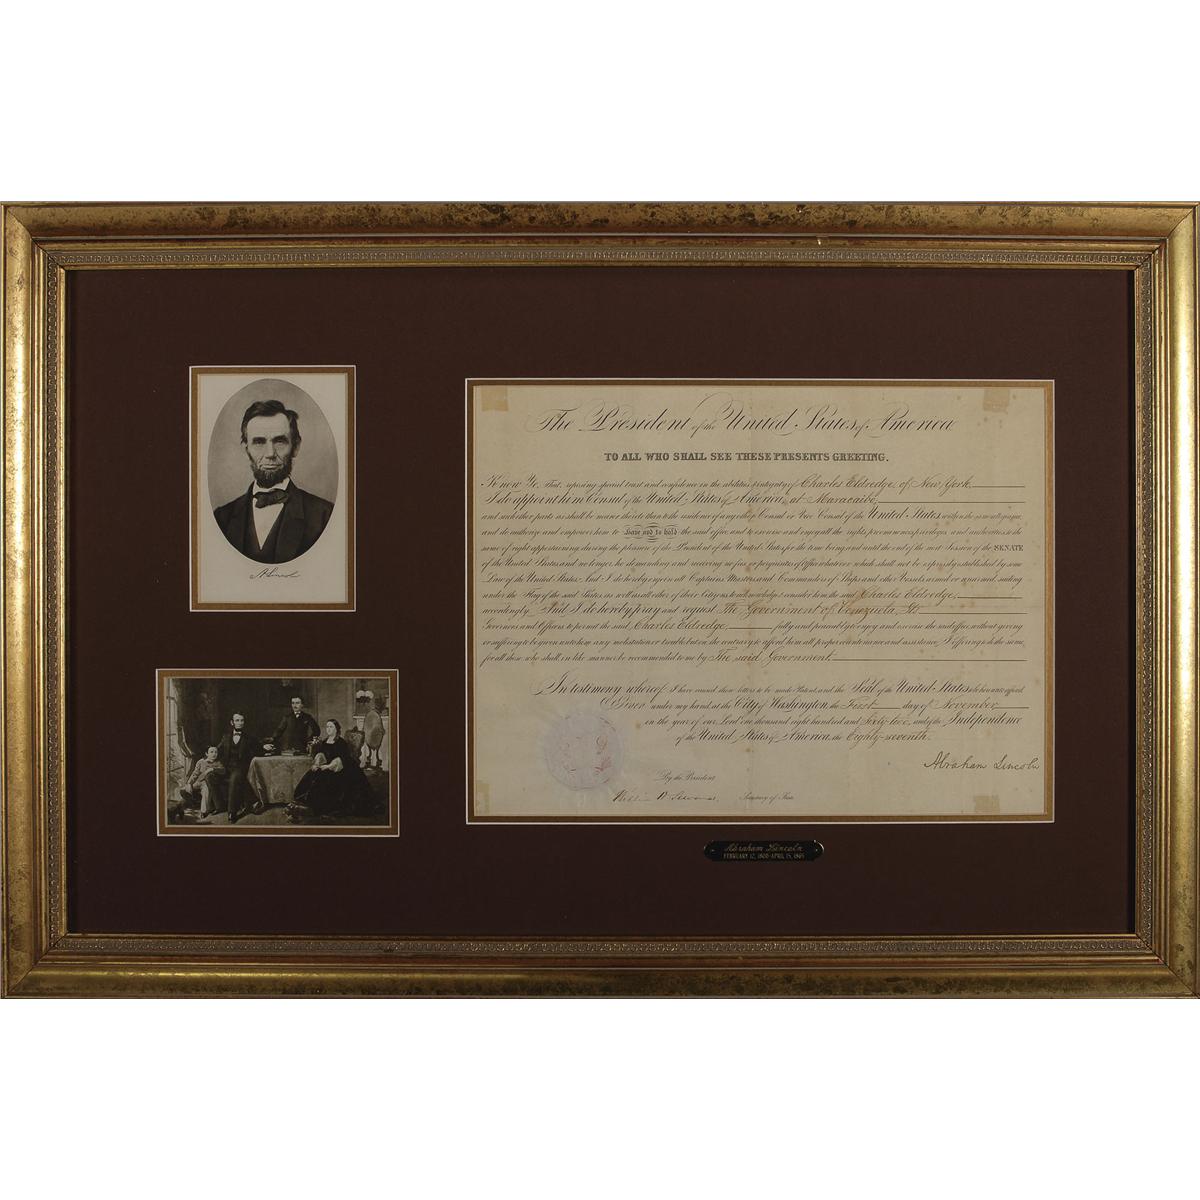 A. Lincoln
The President of the United States of America
TO ALL WHO SHALL SEE THESE PRESENTS GREETING.
Know Ye, That, reposing special trust and confidence in the abilities & integrity of Charles Eldredge, of New York
I do appoint him Consul of the United States of America, at Maracaibo
and such other parts as shall be nearer thereto than to the residence of any other Consul or Vice Consul of the United States within the same allegiance
and do authorize and empower him to have and to hold the said office and to exercise and enjoy all the rights, preeminences, privileges and authorities to the
same of right appertaining during the pleasure of the President of the United States for the time being and until the end of the next Session of the SENATE
of the United States and no longer, he demanding and receiving no fees or perquisites of Office whatever which shall not be expressly established by some
Law of the United States. And I do hereby enjoin all Captains, Masters and Commanders of Ships and other Vessels, armed or unarmed, sailing
under the Flag of the said States as well as all other of their Citizens to acknowledge & consider him the said Charles Eldredge,
accordingly. And I do hereby pray and request The Government of Venezuela, Its
Governors and Officers to permit the said Charles Eldredge, fully and peaceably to enjoy and exercise the said office without giving
or suffering to be given unto him any molestation or trouble but on the contrary to afford him all proper countenance and assistance, I offering to do the same
for all those who shall in like manner be recommended to me by The said Government.
In testimony whereof I have caused these letters to be made Patent and the Seal of the United States to be hereunto affixed
Given under my hand, at the City of Washington, the First day of November
in the year of our Lord one thousand eight hundred and Sixty-two, and of the Independence
of the United States of America, the Eighty-seventh.
Abraham Lincoln
By the President
William H. Seward, Secretary of State
Abraham Lincoln
FEBRUARY 12, 1809-APRIL 15, 1865